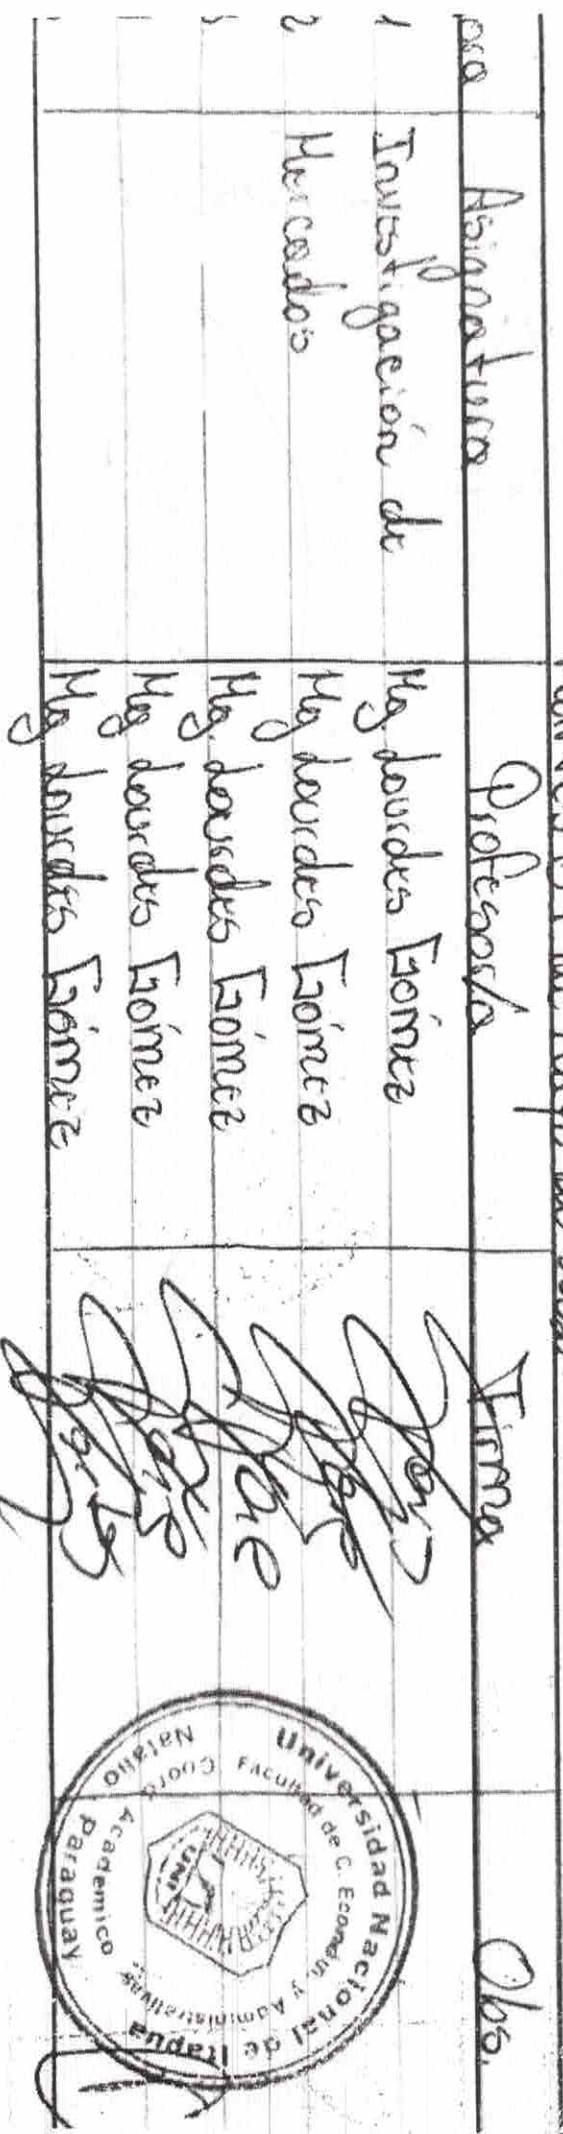 Hora Asignatura Profesor/a Firma Obs.
1 Investigación de Mg Lourdes Gómez
2 Mercados Mg Lourdes Gómez
3 Mg. Lourdes Gómez
Mg Lourdes Gómez
Mg Lourdes Gómez
Universidad Nacional de Itapua
Facultad de C. Económ. y Administrativas
Coord Academico
Natalio Paraguay
UNI